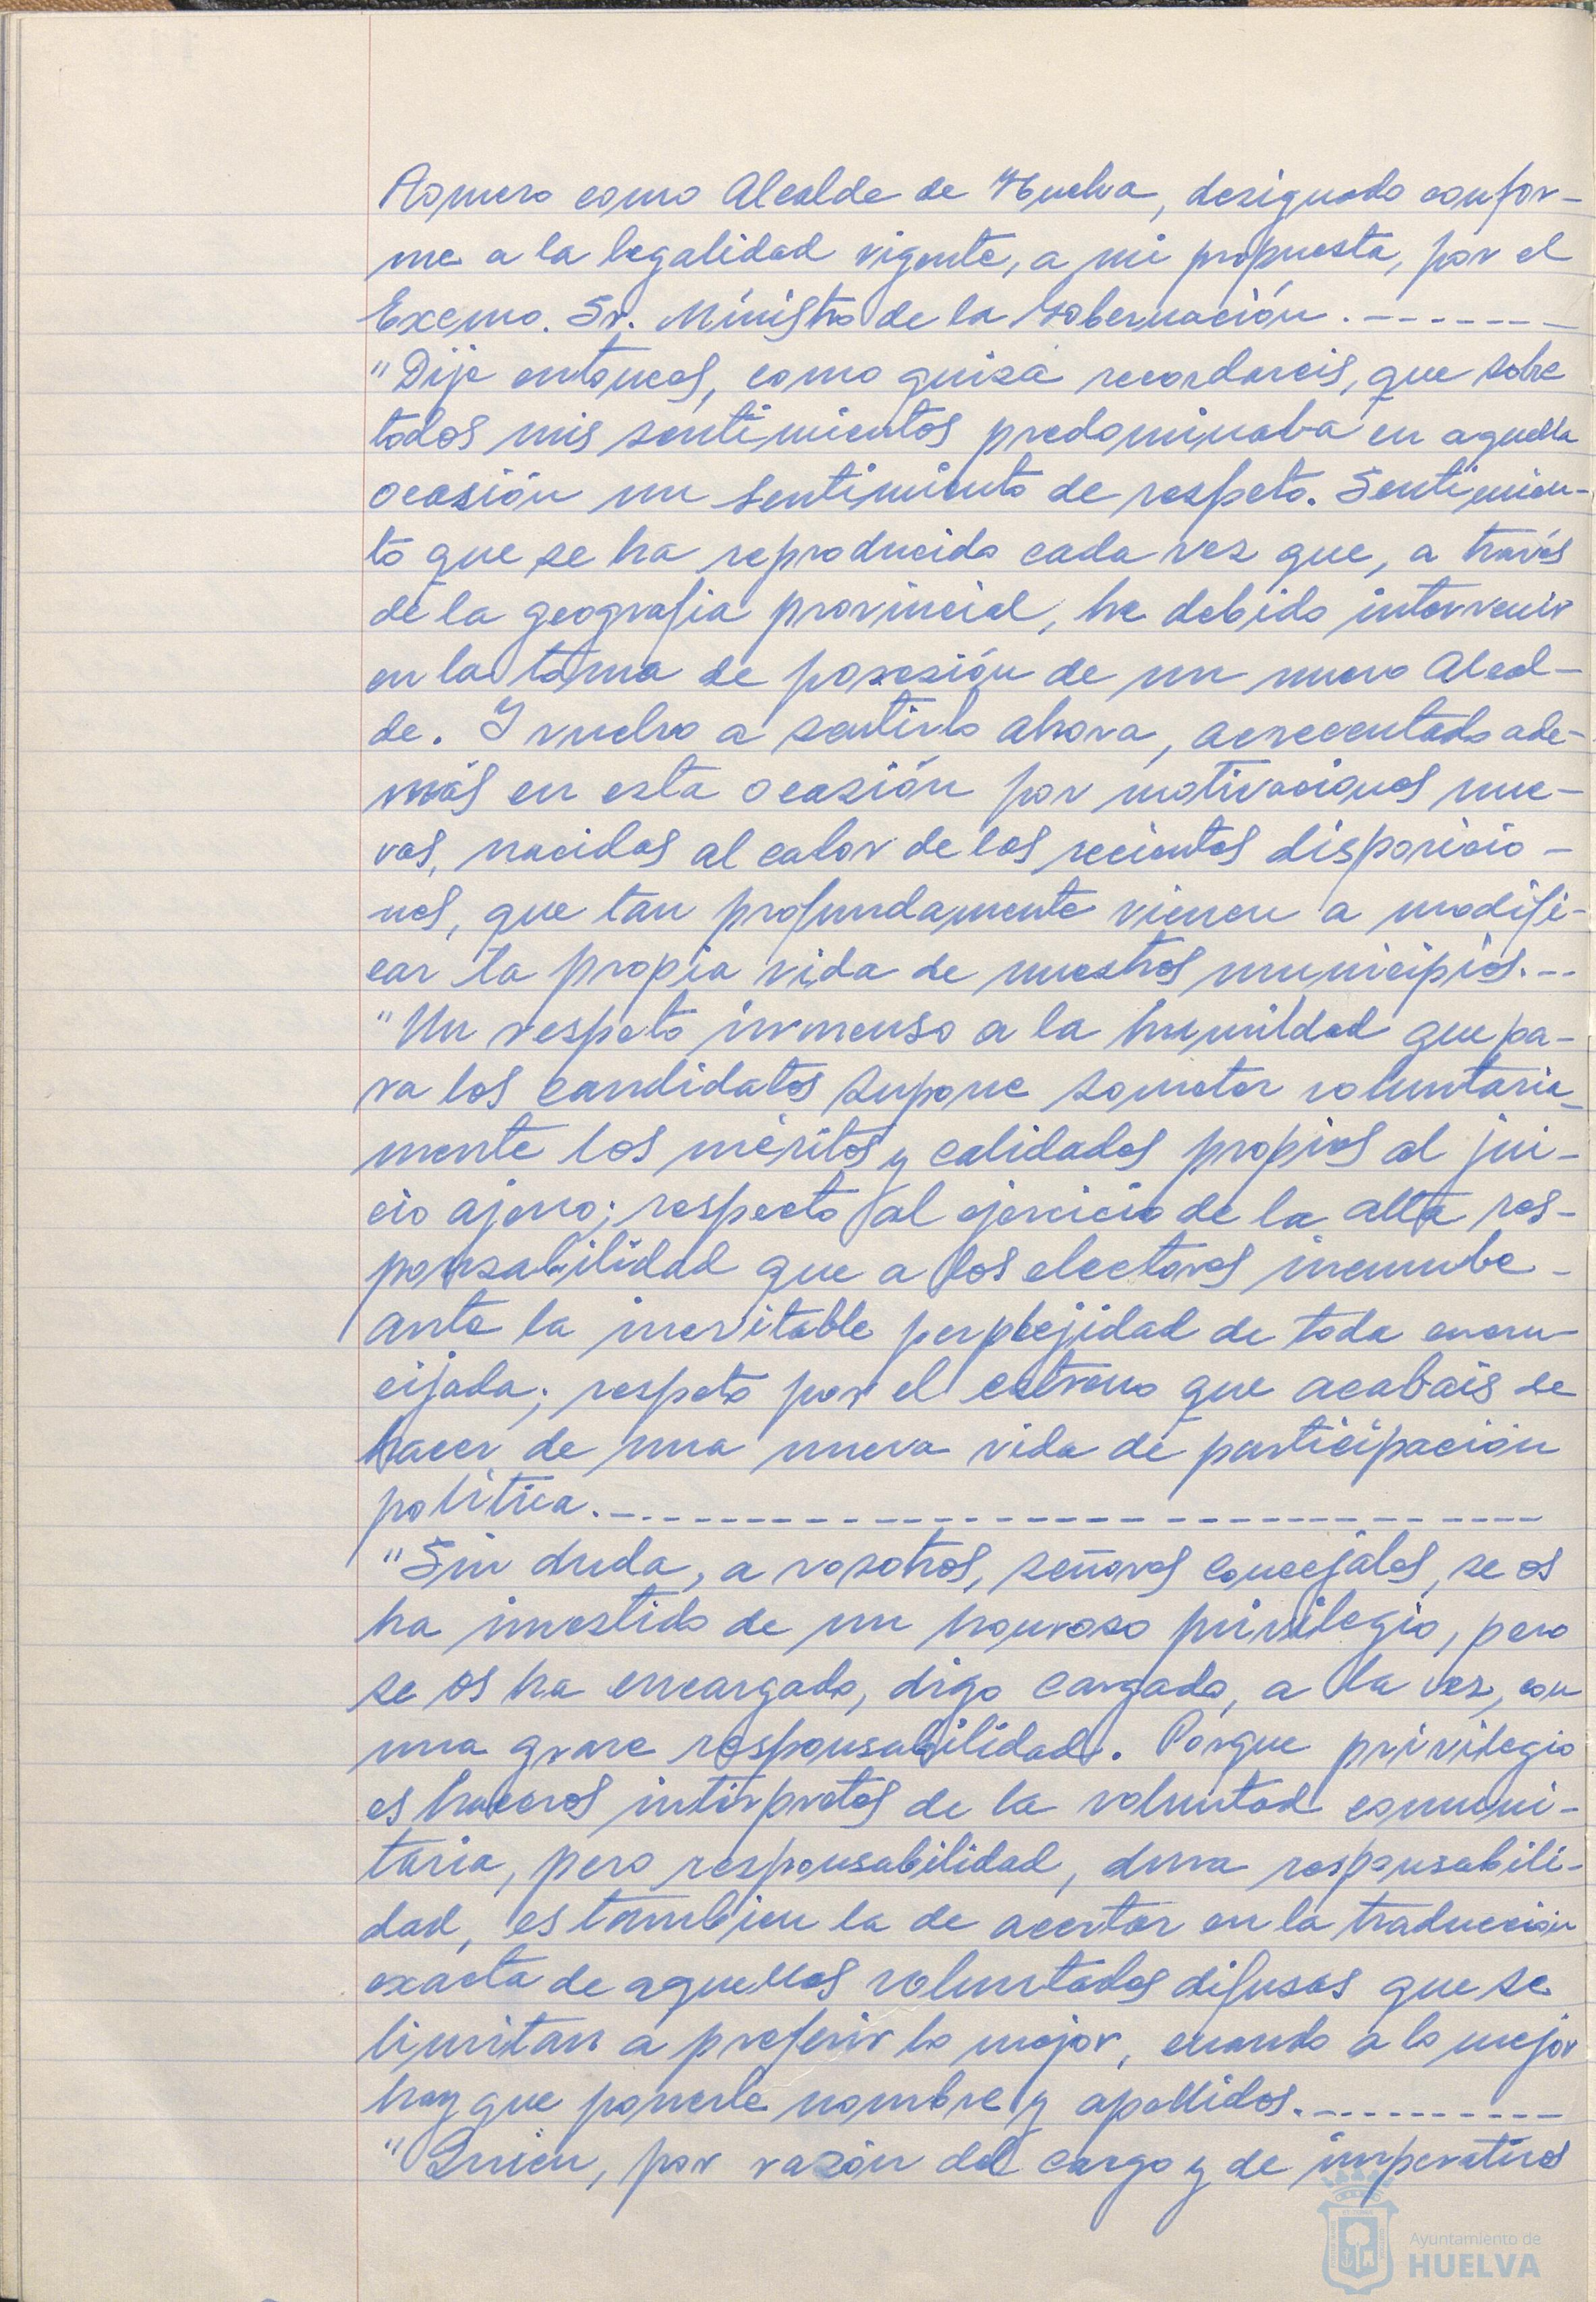 Romero como Alcalde de Huelva, designado confor-
me a la legalidad vigente, a mi propuesta, por el
Excmo. Sr. Ministro de la Gobernación. - - - - - - -
"Dije entonces, como quizá recordareis, que sobre
todos mis sentimientos predominaba en aquella
ocasión un sentimiento de respeto. Sentimien-
to que se ha reproducido cada vez que, a través
de la geografia provincial, he debido intervenir
en la toma de posesión de un nuevo Alcal-
de. Y vuelvo a sentirlo ahora, acrecentado ade-
más en esta ocasión por motivaciones nue-
vas, nacidas al calor de las recientes disposicio-
nes, que tan profundamente vienen a modifi-
car la propia vida de nuestros municipios. - -
"Un respeto inmenso a la humildad que pa-
ra los candidatos supone someter voluntaria-
mente los méritos y calidades propios al jui-
cio ajeno; respecto al ejercicio de la alta res-
ponsabilidad que a los electores incumbe -
ante la inevitable perplejidad de toda encru-
cijada; respeto por el estreno que acabais de
hacer de una nueva vida de participación
política. - - - - - - - - - - - - - - - - - - - - - - - -
"Sin duda, a vosotros, señores concejales, se os
ha investido de un honroso privilegio, pero
se os ha encargado, digo cargado, a la vez, con
una grave responsabilidad. Porque privilegio
es haceros intérpretes de la voluntad comuni-
taria, pero responsabilidad, dura responsabili-
dad, es tambien la de acertar en la traducción
exacta de aquellas voluntades difusas que se
limitan a preferir lo mejor, cuando a lo mejor
hay que ponerle nombre y apellidos. - - - - - - - - - -
"Quien, por razón del cargo y de imperativos
Ayuntamiento de
HUELVA